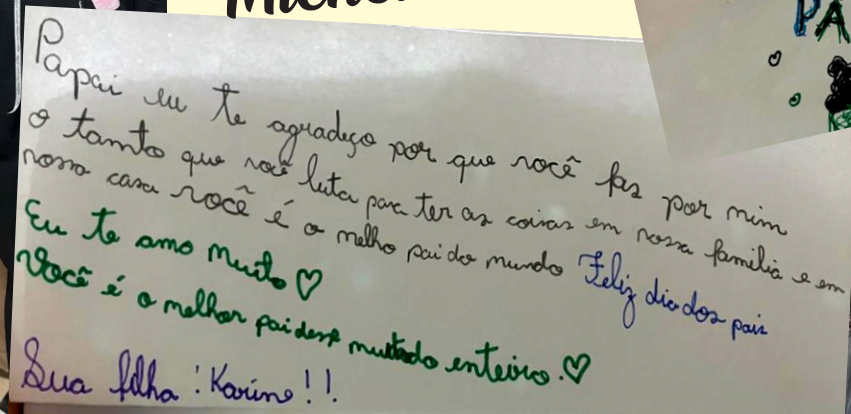 PA
Papai eu te agradeço por que você faz por mim
o tamto que você luta para ter as coisas em nossa família e em
nossa casa você é o melho pai do mundo Feliz dia dos pais
Eu te amo muito♡
Você é o melhor pai desse mundo enteiro.♡
Sua filha: Karine!!.